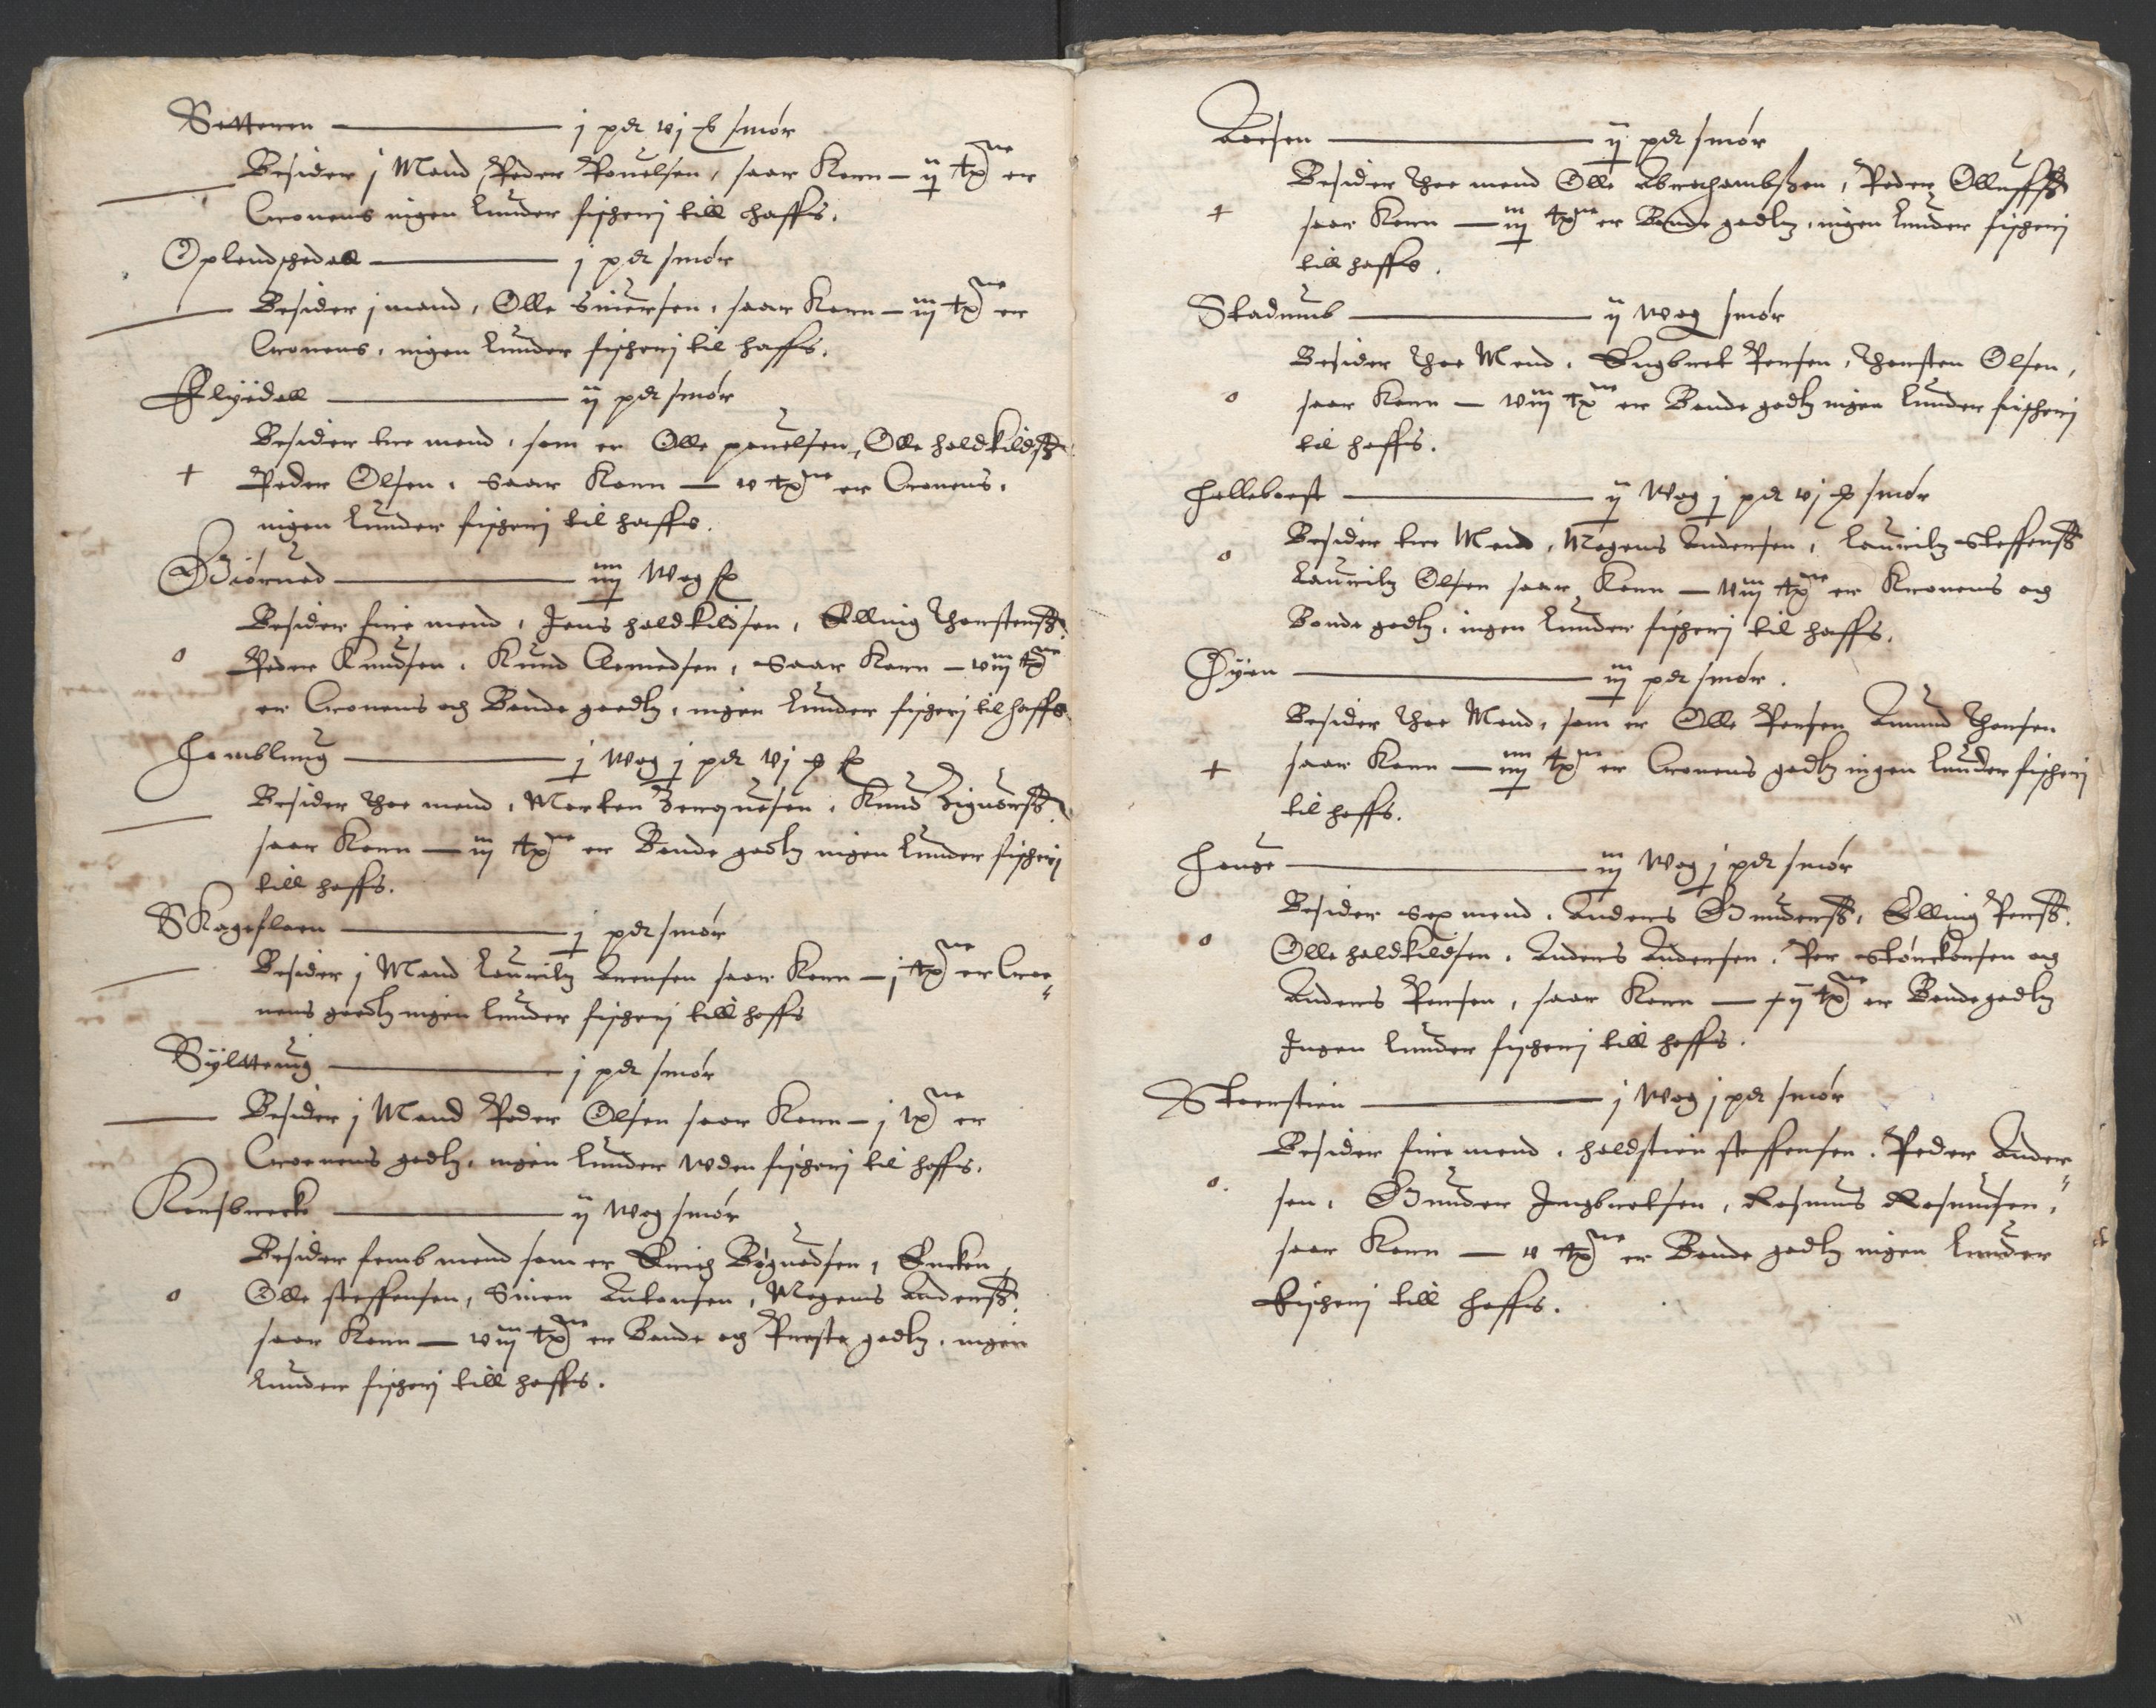 Setteren — j pd vj ℔ smör
Besider j Mand, Peder Pouelsen, saar Korn — ij tn̄e er
Cronens ingen lunder fischerj till haffs.
Oplendschedall — j pd smör
Besider j mand, Olle Siuersen, saar Korn — iij tn̄e er
Cronens, ingen lunder fischerj til haffs.
Flyidall — ij pd smör
Besider tre mend, som er Olle pouelsen, Olle haldkildß
+ Peder Olsen, Saar Korn — v tn̄e er Cronens,
ingen lunder fischerj til haffs.
Giörned — iiij Wog
Besider fire mend, Jens haldkildsen, Elling Thorstenß
o Peder Knudsen, Knud Clemedsen, Saar Korn — viij tn̄e
er Cronens och Bonde goedtz, ingen lunder fischerj til haffs
Homblung — j Wog j pd vj ℔
Besider thoe mend, Morten, Knud Siguorß
saar Korn — iij tn̄e er Bonde godtz ingen lunder fischerj
till haffs.
Skageflaen — j pd smör
Besider j Mand Lauritz Arensen saar Korn — j tn̄e er Croe-
nens goedtz ingen lunder fischerj till haffs
Sylttering — j pd smör
Besider j Mand Peder Olsen saar Korn — j tn̄e er
Croenens godtz, ingen lunder uden fischerj til haffs.
Korsbrecke — ij Wog smör
Besider femb mend som er Erich Bognedsen, Encken,
o Olle steffensen, Siuer Antonsen, Mogens Anderß.
saar Korn — viij tn̄e er Bonde och Preste godtz, ingen
lunder fischerj till haffs.
Aaesen — ij pd smör
Besider thoe mend Olle Abrachambßen, Peder Olluffß
+ saar Korn — iij tn̄e er Bonde godtz, ingen lunder fischerj
till haffs.
Stadumb — ij Wog smör
Besider thoe Mend, Engbret Persen, Thorsten Olsen,
o saar Korn — viij tn̄e er Bonde godtz ingen lunder fischerj
til haffs.
Helleboest — ij Wog j pd vj ℔ smör
Besider tre Mend, Mogens Andersen, Lauritz Steffenß
o Lauritz Olsen saar Korn — viij tn̄e er Kronens och
Bonde godtz, ingen lunder fischerj til haffs.
Öyen — iij pd smör.
Besider thoe Mend, som er Olle Persen Amund Thorsen
+ saar Korn — iiij tn̄e er Cronens godtz ingen lunder fischerj
til haffs.
Houge — iij Wog j pd smör
Besider sex mend, Anders Gunderß, Elling Perß.
o Olle haldkildsen, Anders Andersen, Per Storckorsen och
Anders Persen, saar Korn — xij tn̄e er Bonde godtz
Ingen lunder fischerj till haffs.
Skoerstien — j Wog j pd smör
Besider fire mend, haldstien steffensen, Peder Ander-
o. sen, Gunder Ingbretsen, Rasmus Rasmusen,
saar Korn — v tn̄e er Bonde godtz ingen lunder
Fischerj till haffs.